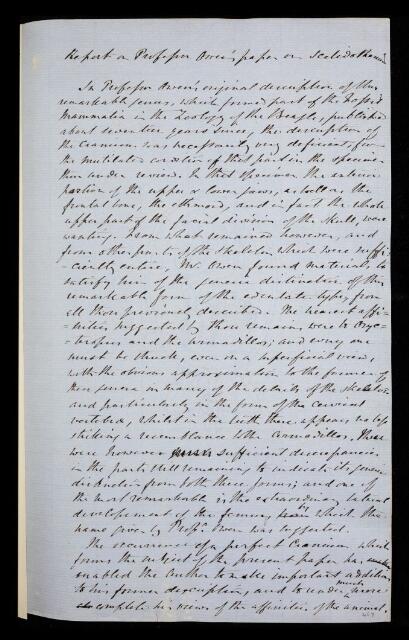 Report on Professor Owen's paper on Scelidotherium
In Professor Owen's original description of this
remarkable genus, which formed part of the Fossil
Mammalia in the Zoology of the Beagle, published
about seventeen years since, the description of
the Cranium was necessarily very deficient, from
the mutilated condition of that part in the specimen
then under review. In that specimen the anterior
portion of the upper & lower jaws, as well as the
frontal bone, the ethmoid, and in fact the whole
upper part of the facial division of the skull, were
wanting. From what remained however, and
from other parts of the skeleton which were suffi-
-ciently entire, Mr. Owen found materials to
satisfy him of the generic distinction of this
remarkable form of the edentate type, from
all those previously described. The nearest affi-
-nities suggested by these remains, were to Oryc-
-teropus and the Armadillos; and every one
must be struck, even on a superficial view,
with the obvious approximation to the former of
these genera in many of the details of the skeleton
and particularly in the form of the cervical
vertebræ, whilst in the teeth there appears no less
striking a resemblance to the Armadillos. There
were however sufficient discrepancies
in the parts still remaining to indicate its generic
distinction from both these forms; and one of
the most remarkable is the extraordinary lateral
development of the femur, from which the
name given by Profr. Owen was suggested.
The occurrence of a perfect Cranium which
forms the subject of the present paper has
enabled the Author to make important additions
to his former description, and to render much more
complete his views of the affinities of the animal.